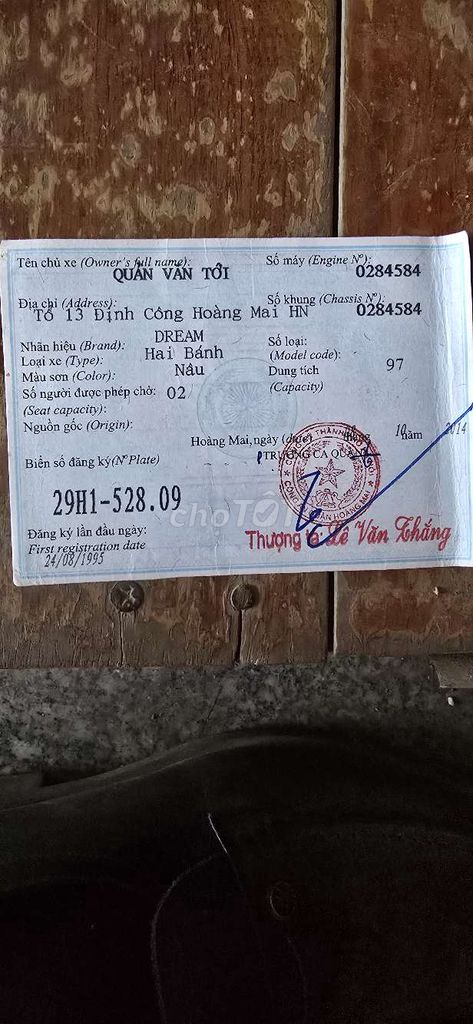 Tên chủ xe (Owner's full name): Số máy (Engine Nº):
QUÁN VĂN TỚI 0284584
Địa chỉ (Address): Số khung (Chassis Nº):
Tổ 13 Định Công Hoàng Mai HN 0284584
Nhãn hiệu (Brand): DREAM Số loại:
Loại xe (Type): Hai Bánh (Model code):
Màu sơn (Color): Nâu Dung tích 97
Số người được phép chở: 02 (Capacity)
(Seat capacity):
Nguồn gốc (Origin):
Hoàng Mai, ngày (date) 10 năm 2014
Biển số đăng ký(Nº Plate) TRƯỞNG CA
29H1-528.09
choTỐT
Đăng ký lần đầu ngày: Thượng tá Lê Văn Thắng
First registration date
24/08/1995